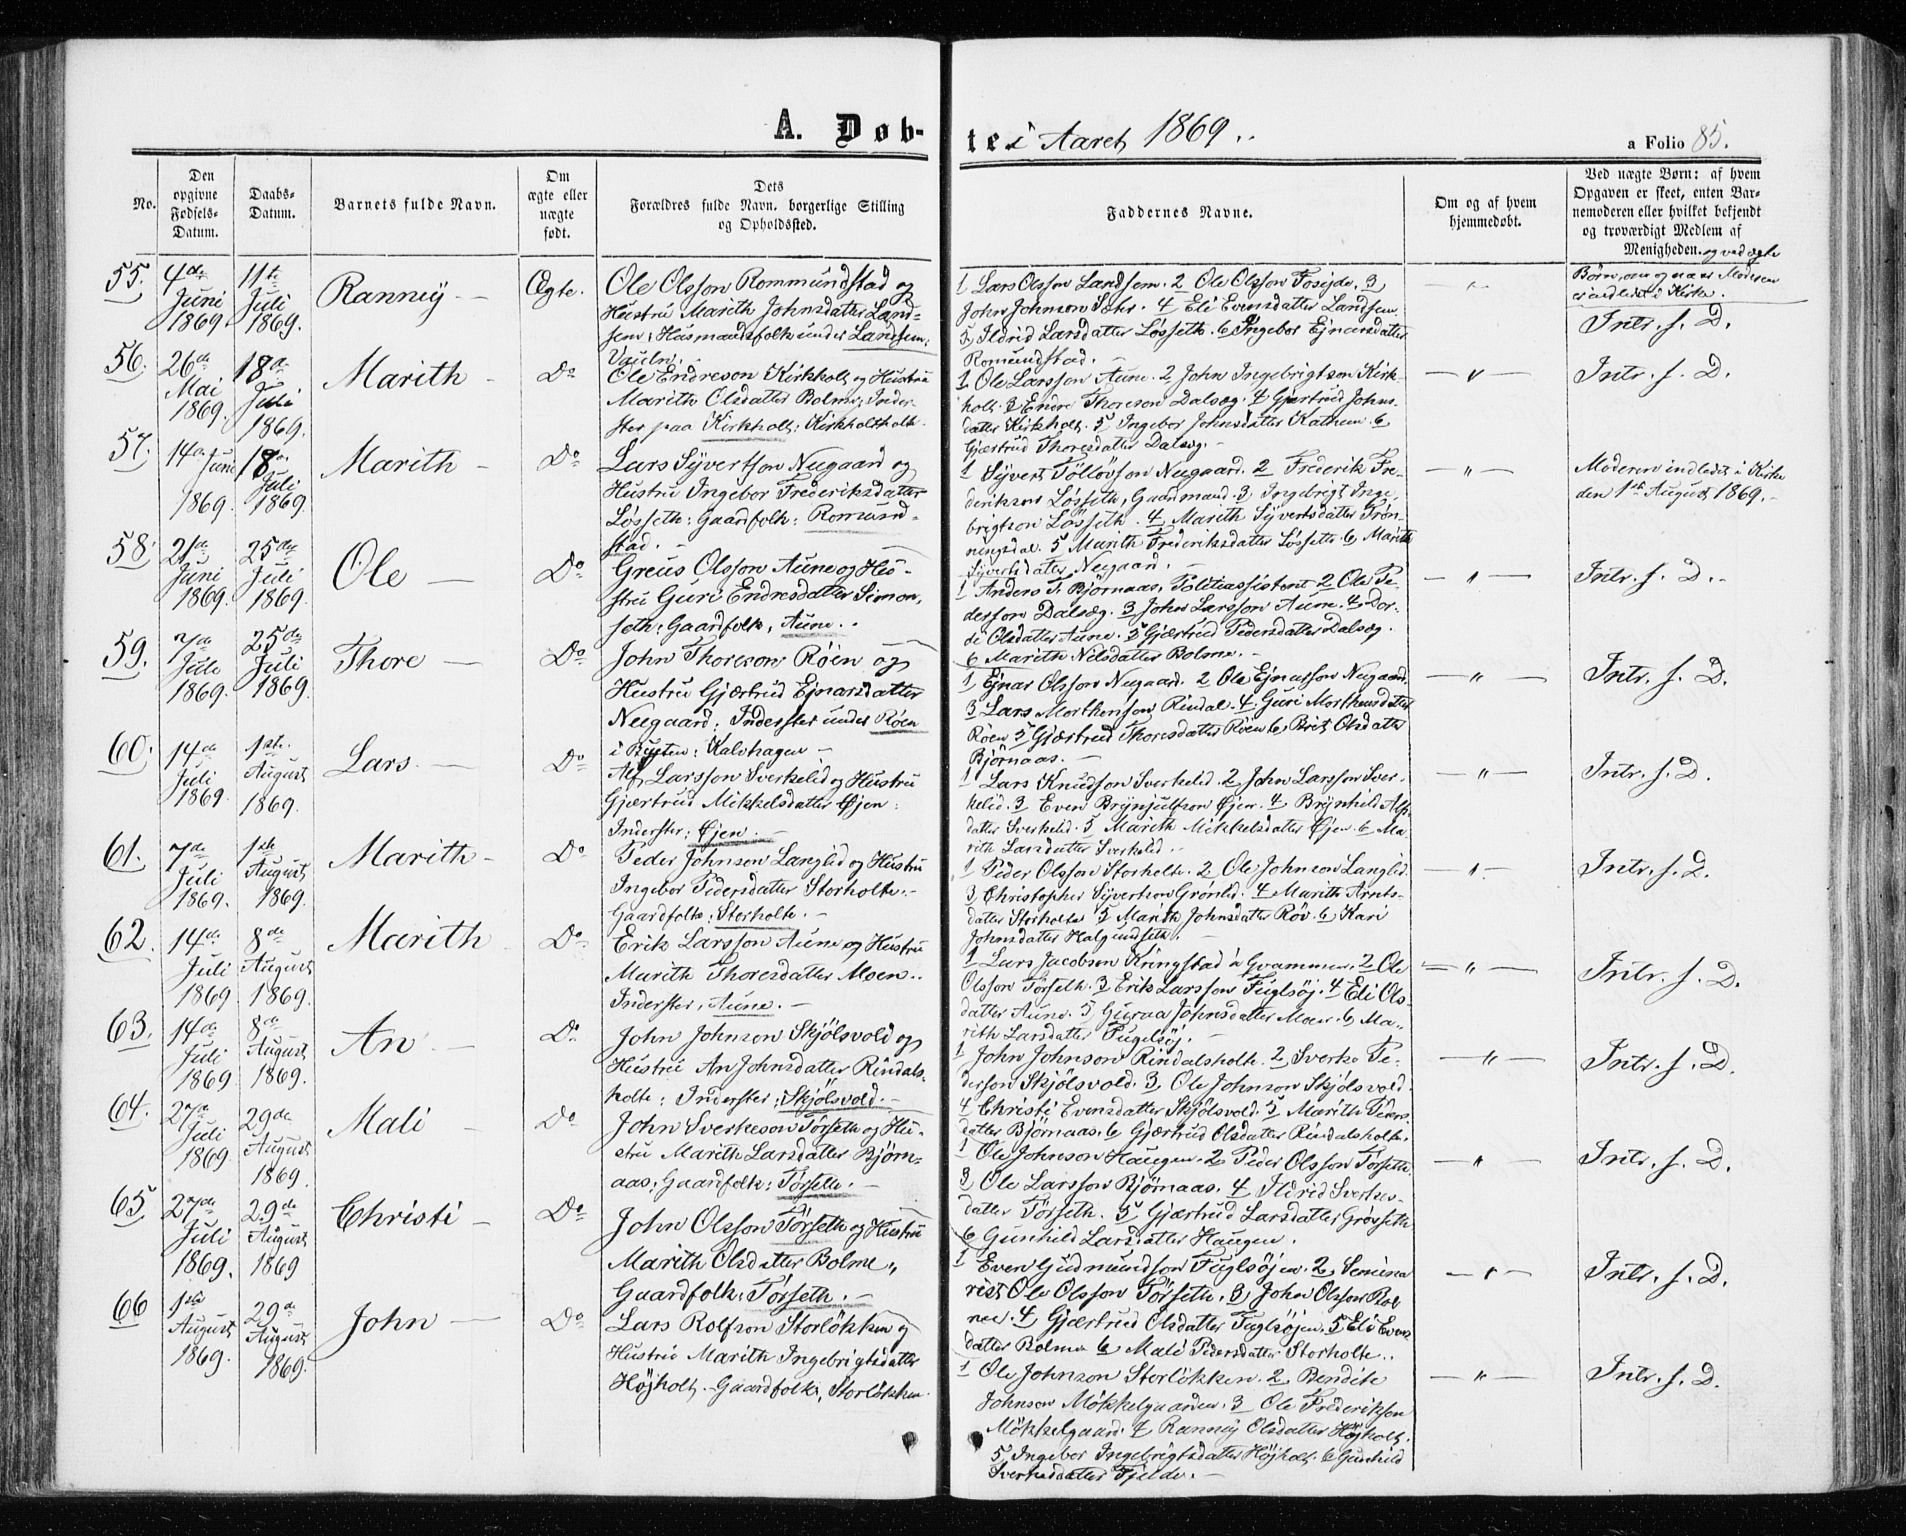 A. Døb-
te i Aaret 1869.
a Folio 85.
No.
Den opgivne Fødsels-Datum.
Daabs-Datum.
Barnets fulde Navn.
Om ægte eller uægte født.
Dets
Forældres fulde Navn, borgerlige Stilling
og Opholdssted.
Faddernes Navne.
Om og af hvem
hjemmedøbt.
Ved uægte Børn: af hvem
Opgaven er skeet, enten Bar-
nemoderen eller hvilket bekjendt
og troværdigt Medlem af
Menigheden. og ved ægte
Børn, om og naar Moderen
er indledet i Kirke.
55.
4de Juni 1869.
11te Juli 1869.
Ranney —
Ægte.
Ole Olsson Rommundstad og
Hustru Marith Johnsdatter Land-
sem; Husmandsfolk under Landsem;
1 Lars Olsson Landsem. 2 Ole Olsson Foseide. 3
John Johnson Sæhr. 4 Eli Evensdatter Landsem.
5 Ildrid Larsdatter Løsseth. 6 Ingebor Ejnarsdatter
Romundstad.
Intr. s. D.
56.
26de Mai 1869.
18de Juli 1869.
Marith —
Do
Ole Endreson Kirkholt og Hustru
Marith Olsdatter Bolme; Inder-
ster paa Kirkholt; Kirkholtholt.
1 Ole Larsson Aune. 2 John Ingebrigtson Kirk-
holt. 3 Endre Thoreson Dalsæg. 4 Gjertrud Johns-
datter Kirkholt. 5 Ingebor Johnsdatter Kathem. 6
Gjærtrud Thoresdatter Dalsæg. —
— " —
Intr. s. D.
57.
14de Juni 1869.
18de Juli 1869.
Marith —
Do
Lars Syvertson Neegaard og
Hustru Ingebor Frederiksdatter
Løsseth; Gaardfolk; Romund-
stad. —
1 Syvert Tølløvson Neegaard. 2 Frederik Fre-
derikson Løsseth, Gaardmand. 3 Ingebrigt Inge-
brigtson Løsseth. 4 Marith Syvertsdatter Trøn-
ningsdal. 5 Marith Frederiksdatter Løsseth. 6 Marith
Syvertsdatter Neegaard. —
— " —
Moderen indledet i Kirke
den 1ste August 1869. —
58.
21de Juni 1869.
25de Juli 1869.
Ole —
Do
Greus Olsson Aune og Hu-
stru Guri Endresdatter Simon-
seth; Gaardfolk; Aune.
1 Anders T. Bjørnaas, Politiassistent 2 Ole Pe-
derson Dalsæg. 3 John Larsson Aune. 4 Dor-
di Olsdatter Aune. 5 Gjærtrud Pedersdatter Dalsæg.
6 Marith Nilsdatter Bolme. —
— " —
Intr. s. D. -
59.
7de Juli 1869.
25de Juli 1869.
Thore —
Do
John Thoreson Røen og
Hustru Gjærtrud Ejnarsdatter
Neegaard. Inderster under Røen
i Bygten: Kalvhagen —
1 Ejnar Olsson Neegaard. 2 Ole Ejnarsson Neegaard.
3 Lars Morthenson Rindal. 4 Guri Morthensdatter
Røen 5 Gjærtrud Thoresdatter Røen 6 Brit Olsdatter
Bjørnaas. —
— " —
Intr. s. D.
60.
14de Juli 1869.
1ste August 1869.
Lars. —
Do
Alf Larsson Sverkelid og Hustru
Gjærtrud Mikkelsdatter Øjen:
Inderster; Øjen. —
1 Lars Knudson Sverkelid. 2 John Larsson Sver-
kelid. 3 Even Brynjulfson Øjen. 4 Brynhild Alfs-
datter Sverkelid. 5 Marith Mikkelsdatter Øjen. 6 Ma-
rith Larsdatter Sverkelid. —
— " —
Intr. s. D.
61.
7de Juli 1869.
1ste August 1869.
Marith —
Do
Peder Johnson Langlid og Hustru
Ingebor Pedersdatter Storholte. —
Gaardfolk; Storholte. —
1 Peder Olsson Storholte. 2 Ole Johnson Langlid.
3 Christopher Syvertson Grønlid. 4 Marith Arnts-
datter Storholte 5 Marith Johnsdatter Røv. 6 Kari
Johnsdatter Halgundseth. —
— " —
Intr. s. D.
62.
14de Juli 1869
8de August 1869.
Marith
Do
Erik Larsson Aune og Hustru
Marith Thoresdatter Moen.
Inderster, Aune. —
1 Lars Jacobsen Kringstad à Gvammen. 2 Ole
Olsson Tørseth. 3 Erik Larsson Fuglsøj. 4 Eli Ols-
datter Aune. 5 Guraa Johnsdatter Moen. 6 Ma-
rith Larsdatter Fugelsøj. —
— " —
Intr. s. D.
63.
14de Juli 1869
8de August 1869.
An —
Do
John Johnson Skjølsvold og
Hustru An Johnsdatter Rindals-
holte; Inderster; Skjølsvold. —
1 John Johnson Rindalsholte. 2 Sverke Pe-
derson Skjølsvold. 3 Ole Johnson Skjølsvold.
4 Christi Evensdatter Skjølsvold. 5 Marith Peders-
datter Bjørnaas. 6 Gjærtrud Olsdatter Rindalsholte.
— " —
Intr. s. D.
64.
27de Juli 1869.
29de August 1869.
Mali —
Do
John Sverkeson Tørseth og Hu-
stru Marith Larsdatter Bjørn-
aas; Gaardfolk; Tørseth. —
1 Ole Johnson Haugen. 2 Peder Olsson Tørseth.
3 Ole Larsson Bjørnaas. 4 Ildrid Sverkes-
datter Tørseth. 5 Gjærtrud Larsdatter Grøvseth
6 Gunhild Larsdatter Haugen.
— " —
Intr. s. D.
65
27de Juli 1869.
29de August 1869
Christi —
Do
John Olsson Tørseth og Hustru
Marith Olsdatter Bolme,
Gaardfolk; Tørseth. —
1 Even Gudmundson Fuglsøjen. 2 Semina-
rist Ole Olsson Tørseth. 3 John Olsson Bol-
me. 4 Gjærtrud Olsdatter Fuglsøjen. 5 Eli Evens-
datter Bolme 6 Mali Pedersdatter Storholte.
— " —
Intr. s. D.
66
1ste August 1869.
29de August 1869.
John —
Do
Lars Rolfson Storløkken og
Hustru Marith Ingebrigtsdatter
Højholt. Gaardfolk, Storløkken
1 Ole Johnson Storløkken. 2 Bendite
Johnson Møkkelgaarden. 3 Ole Frederikson
Møkkelgaard. 4 Ranney Olsdatter Højholt.
5 Ingebor Ingebrigtsdatter Højholt. 6 Gunhild
Sverkesdatter Fjelde. —
— " —
Intr. s. D.